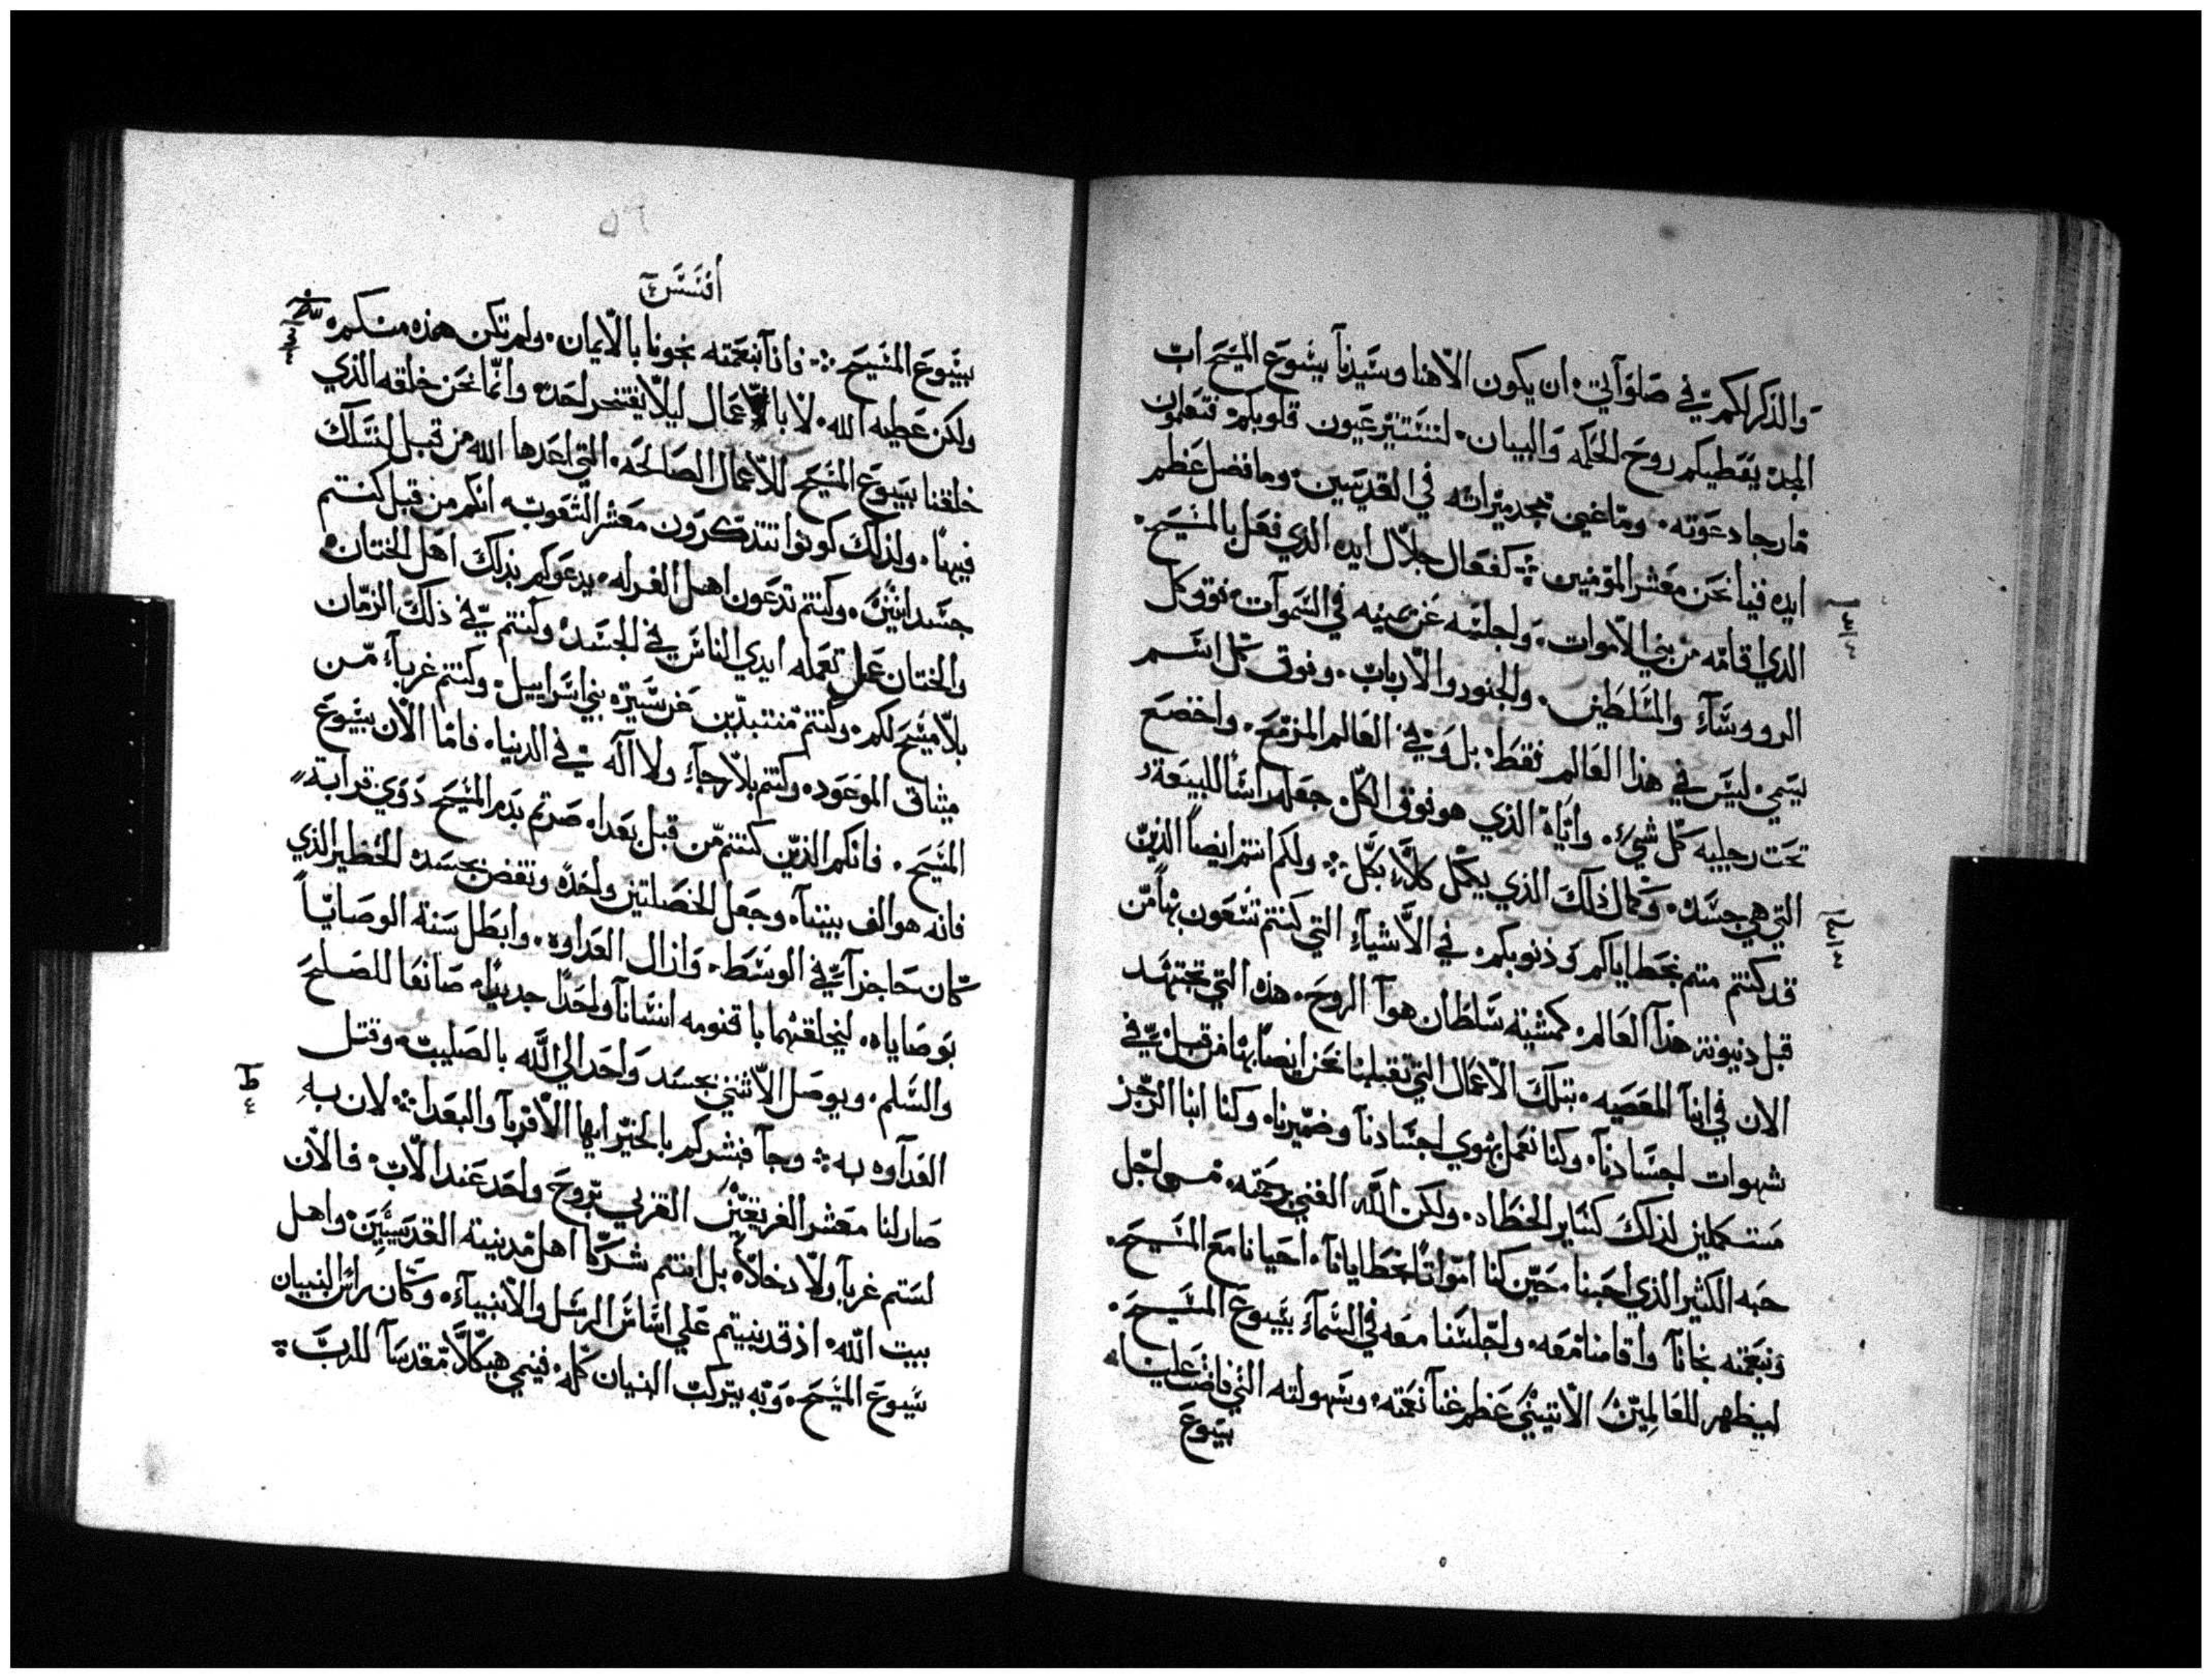 والذكر لكم في صلوآتي. ان يكون الاهنا وسيدنآ يشوع المسيح ابّ
المجد يعطيكم روح الحكمه والبيان. لتستنير عيون قلوبكم فتعلمون
ما رجا دعوته. وما غني مجد ميراثه في القديسين. وما فضل عظم
ايده فينا نحن معشر المومنين كفعال جلال ايده الذي فعل بالمسيح.
الذي اقامه من بين الاموات. واجلسه عن يمينه في السموآت. فوق كل
الرووسآء والسلطين. والجنود والارباب. وفوق كل اسم
يسمي. ليس في هذا العالم فقط. بل وفي العالم المزمع. واخضع
تحت رجليه كل شيء. واياه الذي هو فوق الكل جعله راسًا للبيعة
التي هي جسده. وكمال ذلك الذي يكمل كلاً بكل. ولكم انتم ايضاً الذين
قد كنتم متم بخطاياكم وذنوبكم. في الاشيآء التي كنتم تسعون بها من
قبل دنيونة هذا العالم. كمشيئه سلطان هوآ الروح. هذه التي تجتهد
الان في ابنآ المعصيه. بتلك الاعمال التي تقبلنا نحن ايضاً بها من قبل في
شهوات اجسادنآ. وكنا نعمل بهوي اجسادنآ وضميرنا. وكنا ابنا الرجز
مستكملين لذلك كساير الخطاه. ولكن الله الغني برحمته. من اجل
حبه الكثير الذي احبنا. حين كنا امواتًا بخطايانآ. احيانا مع المسيح.
وبنعمته نجانآ واقامنا معه. واجلسنا معه في السمآء بيسوع المسيح.
ليظهر للعالمين الاتيين عظم غنآ نعمته. وسهولته التي فاضت علينا.
بيسوع
٥٦
أفسس
بيسوع المسيح فانآ بنعمته نجونا بالايمان. ولم تكن هذه منكم.
ولكن عطيه الله. لا بالاعمال ليلا يفتخر احد. وانما نحن خلقه الذي
خلقنا بيسوع المسيح للاعمال الصالحه. التي اعدها الله من قبل لنسلك
فيها. ولذلك كونوا تتذكرون معشر الشعوب انكم من قبل كنتم
جسدانيين. وكنتم تدعون اهل الغرله. يدعوكم بذلك اهل الختان.
والختان عمل تعمله ايدي الناس في الجسد. وكنتم في ذلك الزمان
بلا مسيح لكم. وكنتم منتبذين عن سيرة بني اسراييل. وكنتم غربآء من
ميثاق الموعود. وكنتم بلا رجآء ولا اله في الدنيا. فاما الان بيسوع
المسيح. فانكم الذين كنتم من قبل بعدا. صرتم بدم المسيح ذوي قرابة
فانه هو الف بيننا. وجعل الخصلتين واحده ونقض بجسده الحظير الذي
كان حاجزآً في الوسط. وازال العداوه. وابطل سنة الوصايا
بوصاياه. ليخلقهما باقنومه انسانآً واحدًا جديدًا. صانعًا للصلح
والسلم. ويوصل الاثنين بجسد واحد الي الله بالصليب. وقتل
العدآوه به وجآ فبشركم بالخير ايها الاقربآ والبعدا لان به
صار لنا معشر الفريقين القربي بروح واحد عند الاب. فالان
لستم غربآ ولا دخلآ. بل انتم شركا اهل مدينة القديسين. واهل
بيت الله. اذ قد بنيتم علي اساس الرسل والانبيآء. وكان راس البنيان
يسوع المسيح. وبه يتركب البنيان كله. فينمي هيكلاً مقدسآً للرب